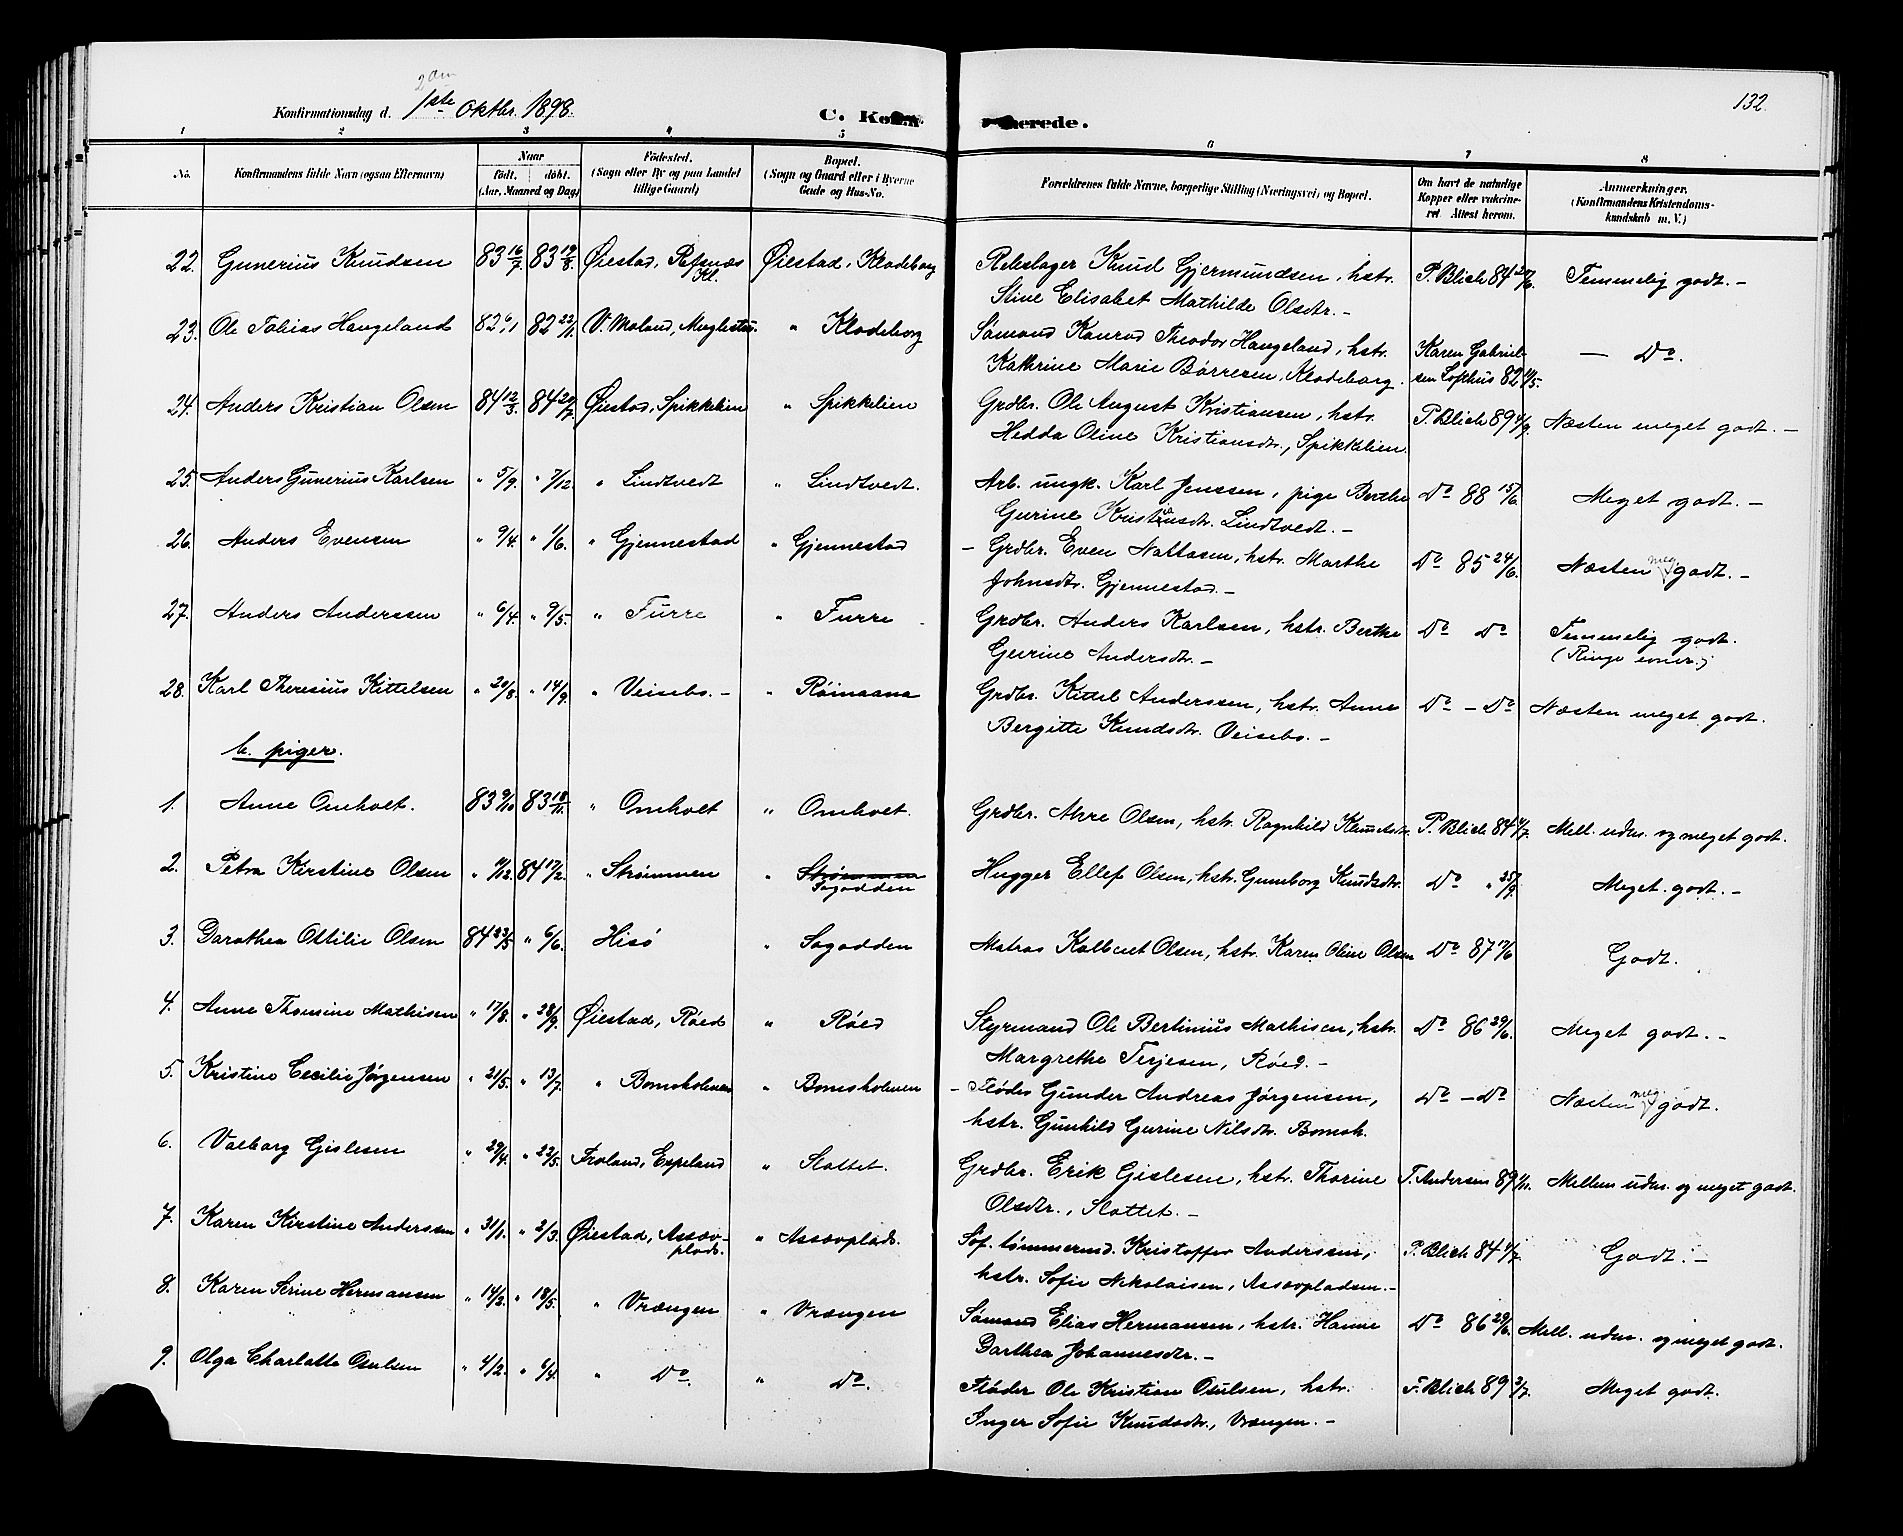 132.
2den
Konfirmationsdag d. 1ste Oktbr. 1898.
C. Kon
erede.
1 2 3 4 5 6 7 8
No. Konfirmandens fulde Navn (ogsaa Efternavn) Naar født. døbt. (Aar, Maaned og Dag) Fødested. (Sogn eller By og paa Landet tillige Gaard) Bopæl. (Sogn og Gaard eller i Byerne Gade og Hus-No. Forældrenes fulde Navne, borgerlige Stilling (Næringsvei) og Bopæl. Om havt de naturlige Kopper eller vakcineret. Attest herom. Anmerkninger. (Konfirmandens Kristendomskundskab m. V.)
22. Gunerius Knudsen 83 16/7 83 19/8 Øiestad, Refsnæs Kl. Øiestad, Klodeborg Rebslager Knud Gjermundsen, hstr. P. Blich 84 Temmelig godt. -
Stine Elisabet Mathilde Olsdtr. -
23. Ole Tobias Haugeland 82 6/1 82 22/11 V. Moland, " Klodeborg Sømand Konrad Theodor Haugeland, hstr. Karen Gabriel- — Do.
Kathrine Marie Børresen, Klodeborg. sen Lofthus 82
24. Anders Kristian Olsen 84 12/3 84 20/7 Øiestad, Spikkelien " Spikkelien Grdbr. Ole August Kristiansen, hstr. P. Blich 89 4/9 Næsten meget godt. -
Hedda Oline Kristiansdtr., Spikkelien.
25. Anders Gunerius Karlsen " 5/9. " 7/12. " Lindtvedt " Lindtvedt. Arb. ungk. Karl Jenssen, pige Berthe Do 88 15/6 Meget godt. -
Gurine Kristensdtr. Lindtvedt. -
26. Anders Evensen " 9/4. " 1/6. " Gjennestad " Gjennestad - Grdbr. Even Nattasen, hstr. Marthe Do 85 24/6. Næsten meg. godt. -
Johnsdtr. Gjennestad. -
27. Anders Anderssen " 6/4. " 9/5. " Furre " Furre Grdbr. Anders Karlsen, hstr. Berthe Do Do Temmelig godt.
Gurine Andersdtr. - (Ringe evner.)
28. Karl Theresius Kittelsen " 20/8. " 14/9. " Veisebo. - " Røinaana Grdbr. Kittel Anderssen, hstr. Anne Do - Do Næsten meget godt.
Bergitte Knudsdtr. Veisebo. -
b. piger.
1. Anne Omholt. 83 9/10 83 18/11. " Omholt " Omholt. Grdbr. Ahre Olsen, hstr. Ragnhild Knudsdtr. P. Blich 84 4/7 Mell. udm. og meget godt.
2. Petra Kirstine Olsen " 11/12. 84 17/2. " Strømmen " Strømmen Hugger Ellef Olsen, hstr. Gunneborg Knudsdtr. Do " 25/9. Meget godt. -
Sagodden
3. Darothea Ottilie Olsen 84 23/5 " 6/6. Hisø " Sagodden Matros Kalbert Olsen, hstr. Karen Oline Olsen Do 87 17/6 Godt.
4. Anne Thomine Mathisen " 17/8. " 28/9. Øiestad, Røed " Røed Styrmand Ole Bertinius Mathisen, hstr. Do 86 29/6. Meget godt. -
Margrethe Terjesen, Røed. -
5. Kristine Cecilie Jørgensen " 21/5. " 13/7. " Bomsholmen " Bomsholmen - Fløder Gunder Andreas Jørgensen, Do - Do Næsten meg. godt.
hstr. Gunhild Gurine Nilsdtr. Bomsh.
6. Valborg Gislesen " 29/4. " 22/5. Froland, Espeland " Slottet. Grdbr. Erik Gislesen, hstr. Thorine T. Andersen 89 1/11. Mellem udm. og meget godt.
Olsdtr., Slottet. -
7. Karen Kirstine Anderssen " 31/1. " 2/3. Øiestad, Assæv- " Assævplads. Søf. tømmermd. Kristoffer Anderssen, P. Blich 84 4/7 Godt. -
plads.
hstr. Sofie Nikolaisen, Assævpladsen. -
8. Karen Serine Hermansen " 14/2. " 18/5. " Vrængen " Vrængen Sømand Elias Hermansen, hstr. Hanne Do 86 29/6. Mell. udm. og meget godt.
Darthea Johannesdtr. -
9. Olga Charlotte Osulsen " 4/2. " 6/4. " Do. " Do. Fløder Ole Kristian Osulsen, hstr. P. Blich 89 2/7. Meget godt.
Inger Sofie Knudsdtr., Vrængen. -